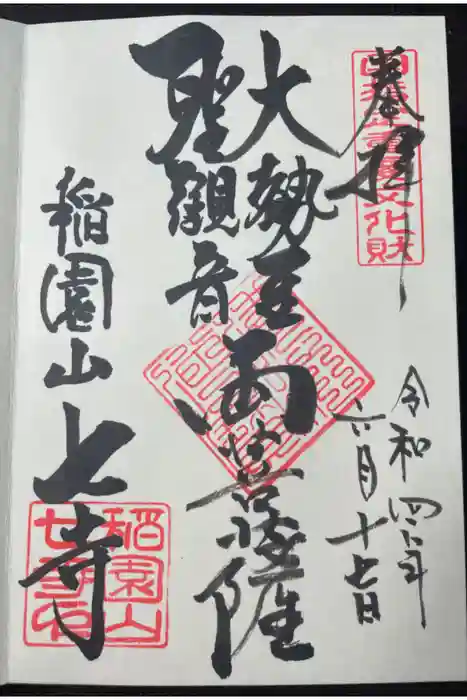 奉拝
重要文化財
令和四年
六月十七日
大勢至
聖観音
両菩薩
稲園山
七寺
稲園山